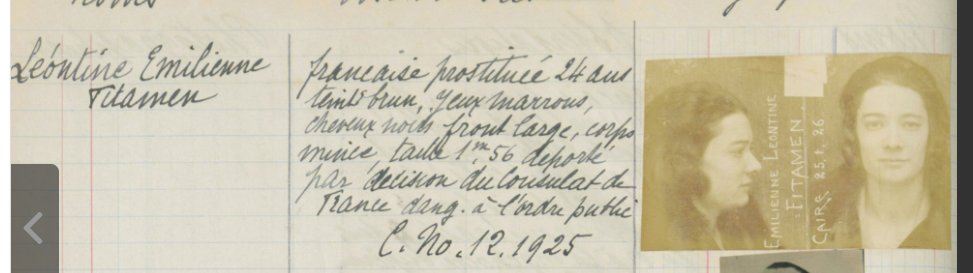 Léontine Emilienne
Titamen
francaise prostituée 24 ans
teint brun, yeux marrons,
cheveux noirs front large, corps
mince, taille 1m,56 deporté
par décision du Consulat de
France dang. à l'ordre public
C. No. 12. 1925
EMILIENNE LEONTINE
TITAMEN.
CAIRE 25.1.26